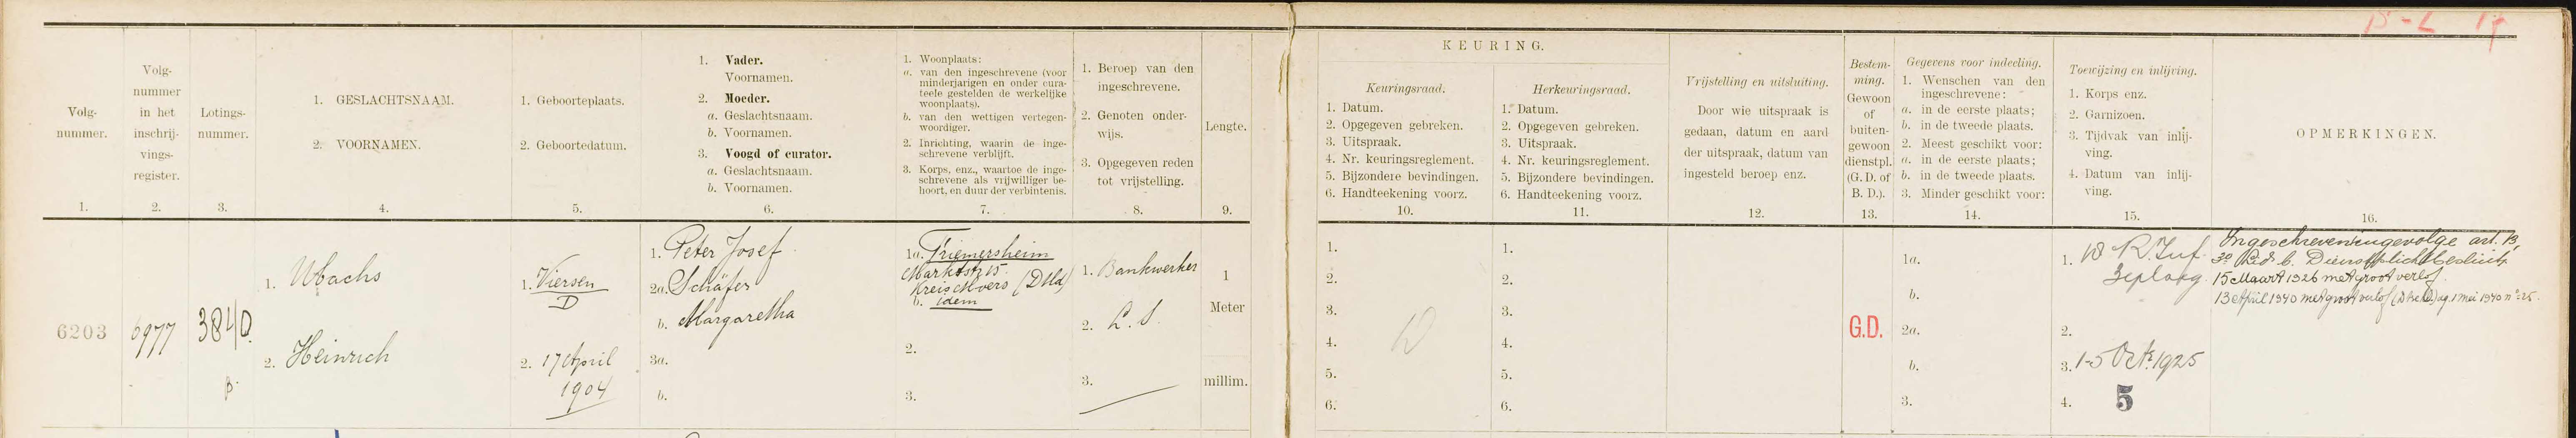 Volg-
nummer.
1.
Volg-
nummer
in het
inschrij-
vings-
register.
2.
Lotings-
nummer.
3.
1. GESLACHTSNAAM.
2. VOORNAMEN.
4.
1. Geboorteplaats.
2. Geboortedatum.
5.
1. Vader.
Voornamen.
2. Moeder.
a. Geslachtsnaam.
b. Voornamen.
3. Voogd of curator.
a. Geslachtsnaam.
b. Voornamen.
6.
1. Woonplaats:
a. van den ingeschrevene (voor
minderjarigen en onder cura-
teele gestelden de werkelijke
woonplaats).
b. van den wettigen vertegen-
woordiger.
2. Inrichting, waarin de inge-
schrevene verblijft.
3. Korps, enz., waartoe de inge-
schrevene als vrijwilliger be-
hoort, en duur der verbintenis.
7.
1. Beroep van den
ingeschrevene.
2. Genoten onder-
wijs.
3. Opgegeven reden
tot vrijstelling.
8.
Lengte.
9.
KEURING.
Keuringsraad.
1. Datum.
2. Opgegeven gebreken.
3. Uitspraak.
4. Nr. keuringsreglement.
5. Bijzondere bevindingen.
6. Handteekening voorz.
10.
Herkeuringsraad.
1. Datum.
2. Opgegeven gebreken.
3. Uitspraak.
4. Nr. keuringsreglement.
5. Bijzondere bevindingen.
6. Handteekening voorz.
11.
Vrijstelling en uitsluiting.
Door wie uitspraak is
gedaan, datum en aard
der uitspraak, datum van
ingesteld beroep enz.
12.
Bestem-
ming.
Gewoon
of
buiten-
gewoon
dienstpl.
(G. D. of
B. D.).
13.
Gegevens voor indeeling.
1. Wenschen van den
ingeschrevene:
a. in de eerste plaats;
b. in de tweede plaats.
2. Meest geschikt voor:
a. in de eerste plaats;
b. in de tweede plaats.
3. Minder geschikt voor:
14.
Toewijzing en inlijving.
1. Korps enz.
2. Garnizoen.
3. Tijdvak van inlij-
ving.
4. Datum van inlij-
ving.
15.
OPMERKINGEN.
16.
6203
6977
3840.
1. Wbachs
2. Heinrich
1. Viersen
D
2. 17 April
1904
1. Peter Josef
2a. Schäfer
b. Margaretha
3a.
b.
1a. Friemersheim
Markstr 15
Kreis Mörs (Dld)
b. idem
2.
3.
1. Bankwerker
2. L. S.
3.
1
Meter
millim.
1.
2.
3.
4.
5.
6.
1.
2.
3.
4.
5.
6.
G.D.
1a.
b.
2a.
b.
3.
1. 18 R. Inf.
3e ploeg
2.
3. 1-5 Oct. 1925
4. 5
Ingeschreven ingevolge art. 13,
3e lid b. Dienstplichtbesluit
15 Maart 1926 met groot verlof
13 April 1940 met groot verlof
1 Mei 1940 no. 25.